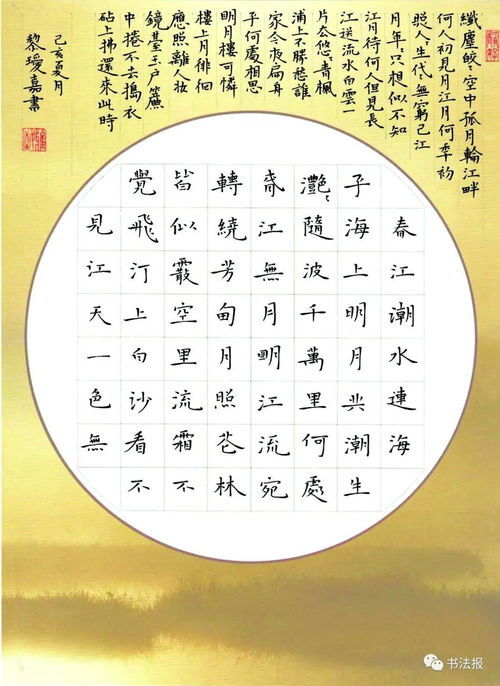 春江潮水連海
平海上明月共潮生
灔〻隨波千萬里何處
春江無月明江流宛
轉繞芳甸月照花林
皆似霰空里流霜不
覺飛汀上白沙看不
見江天一色無
纖塵皎〻空中孤月輪江畔
何人初見月江月何年初
照人〻生代〻無窮已江
月年〻只相似不知
江月待何人但見長
江送流水白雲一
片去悠〻青楓
浦上不勝愁誰
家今夜扁舟
子何處相思
明月樓可憐
樓上月徘徊
應照離人妝
鏡臺玉戶簾
中捲不去搗衣
砧上拂還來此時
己亥夏月
黎璦嘉書
书法报